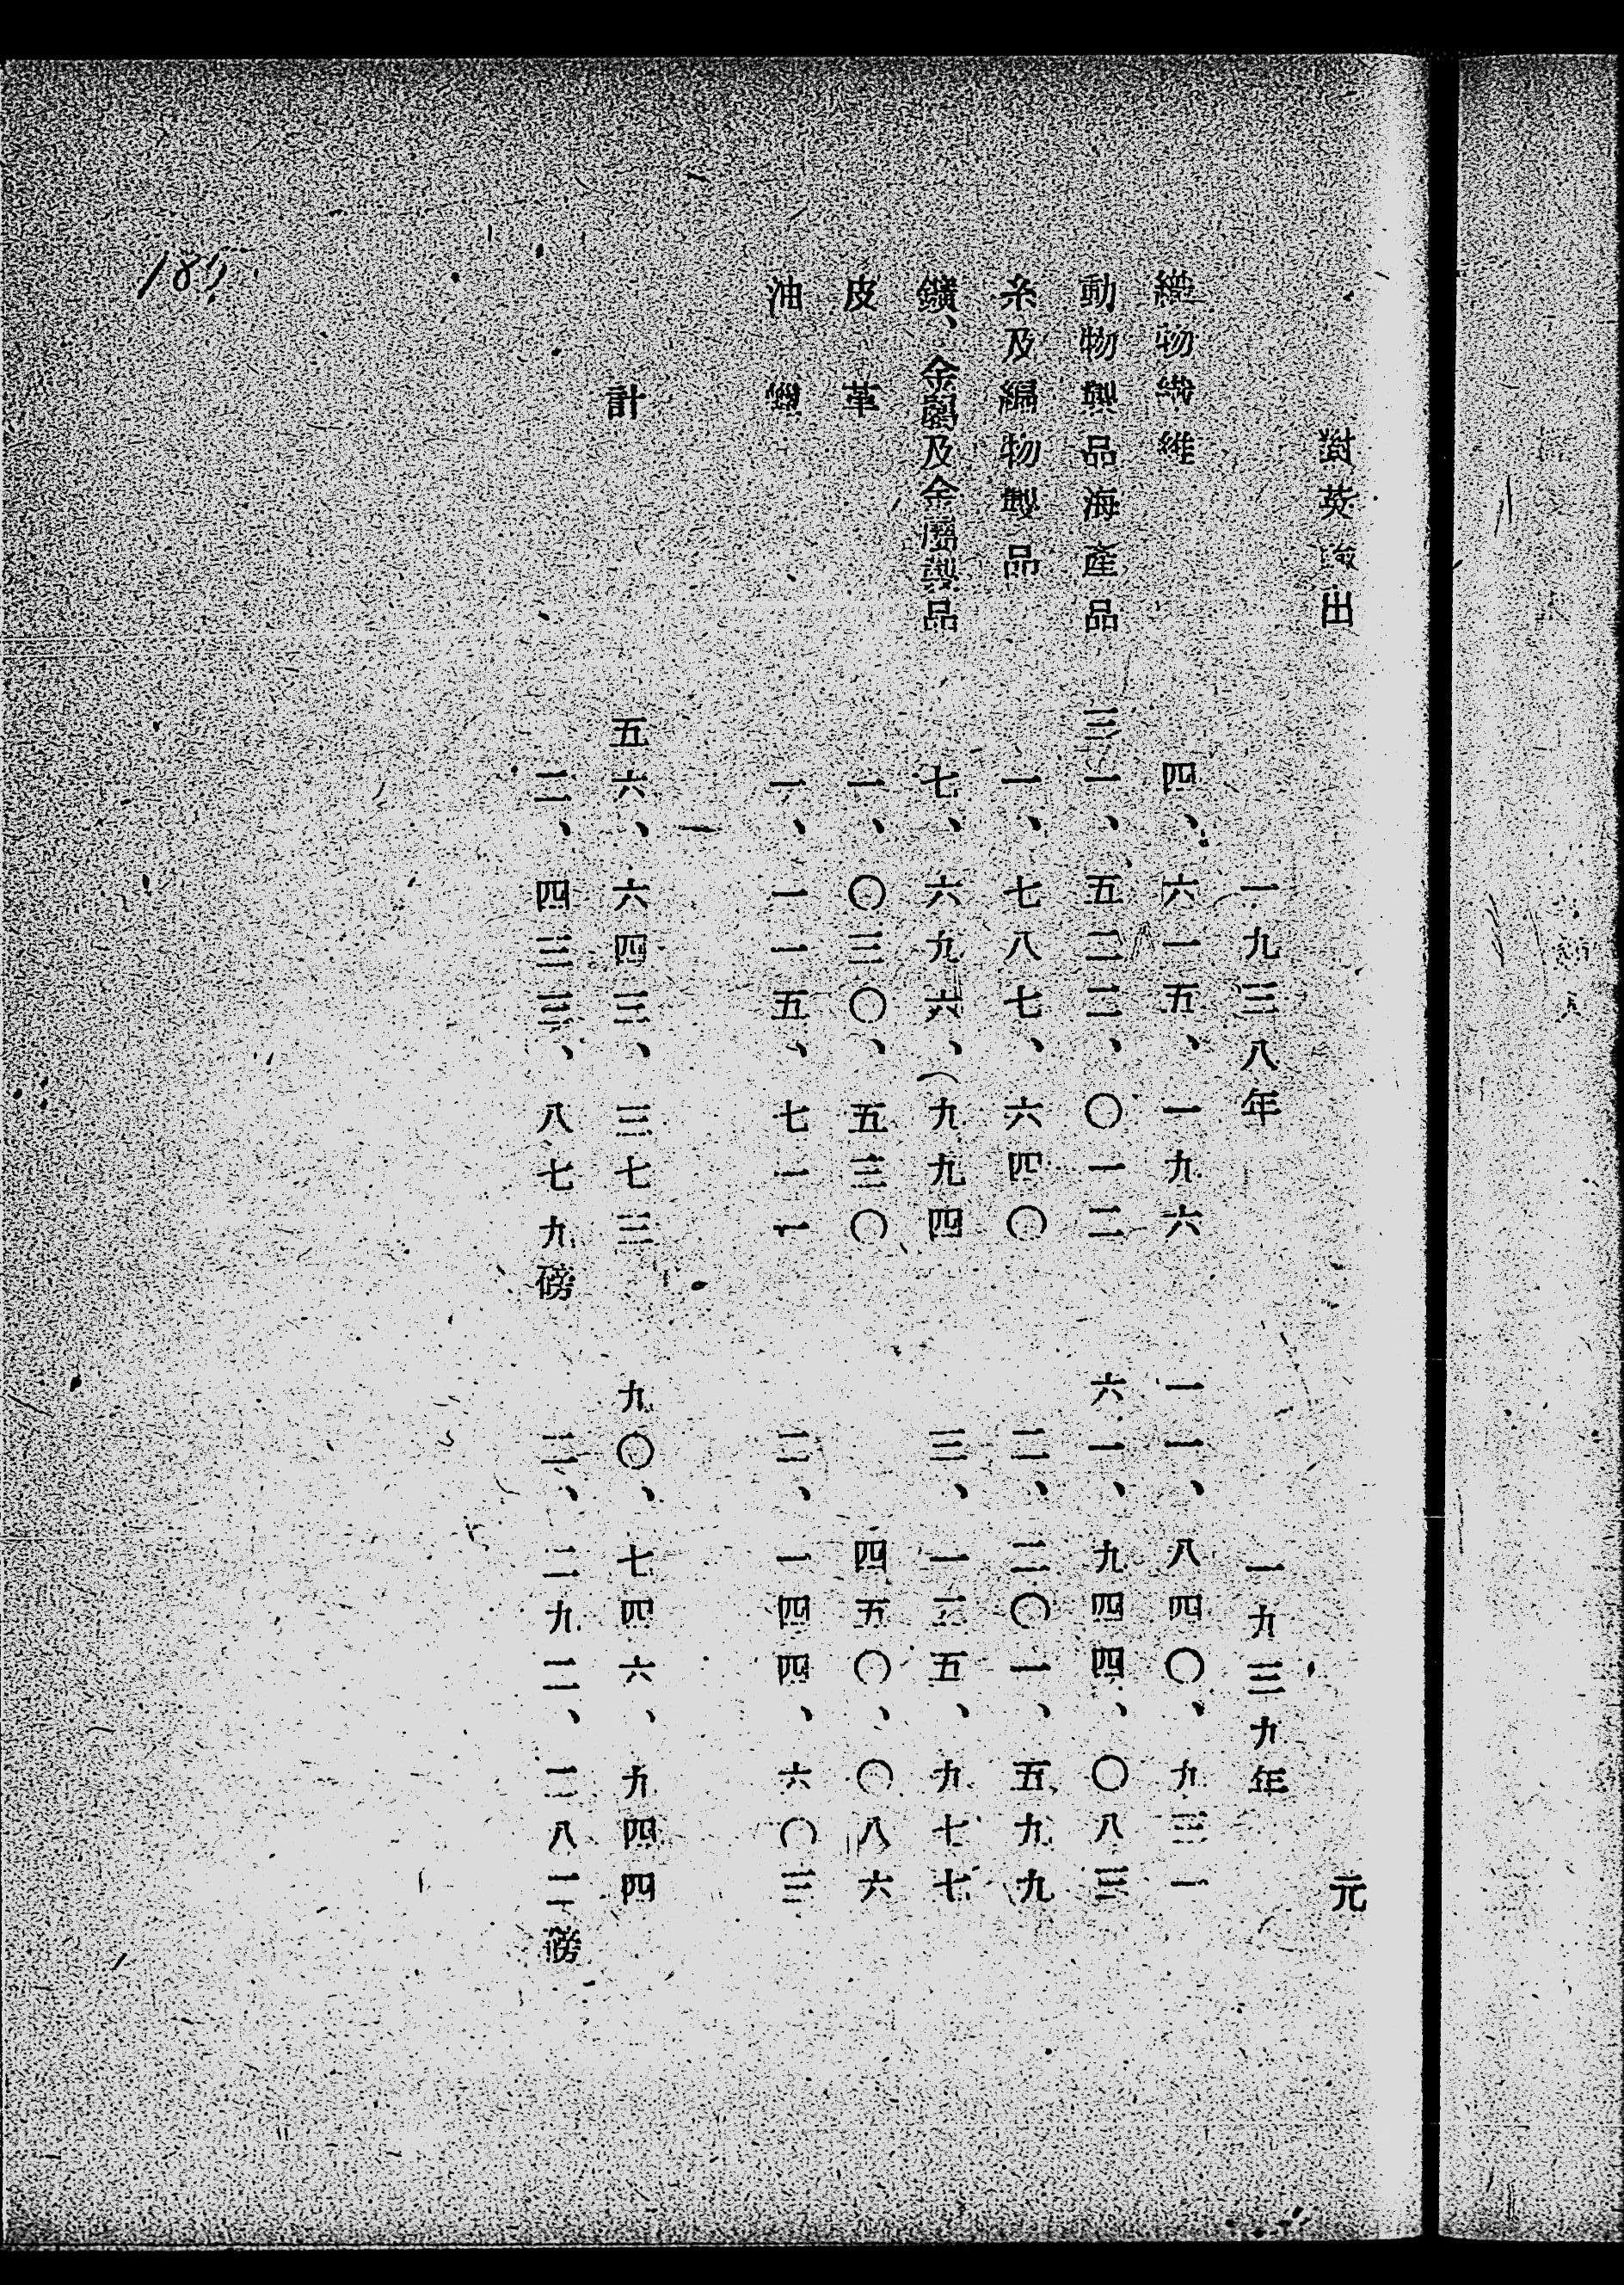 對英輸出 元
一九三八年 一九三九年
織物纖維 四、六一五、一九六 一一、八四〇、九三一
動物製品海產品 三一、五二二、〇一二 六一、九四四、〇八三
糸及編物製品 一、七八七、六四〇 二、二〇一、五九九
鑛、金屬及金屬製品 七、六九六、九九四 三、一二五、九七七
皮革 一、〇三〇、五三〇 四五〇、〇八六
油蠟 一、一一五、七一一 二、一四四、六〇三
計 五六、六四三、三七三 九〇、七四六、九四四
二、四三三、八七九磅 二、二九二、二八二磅
185